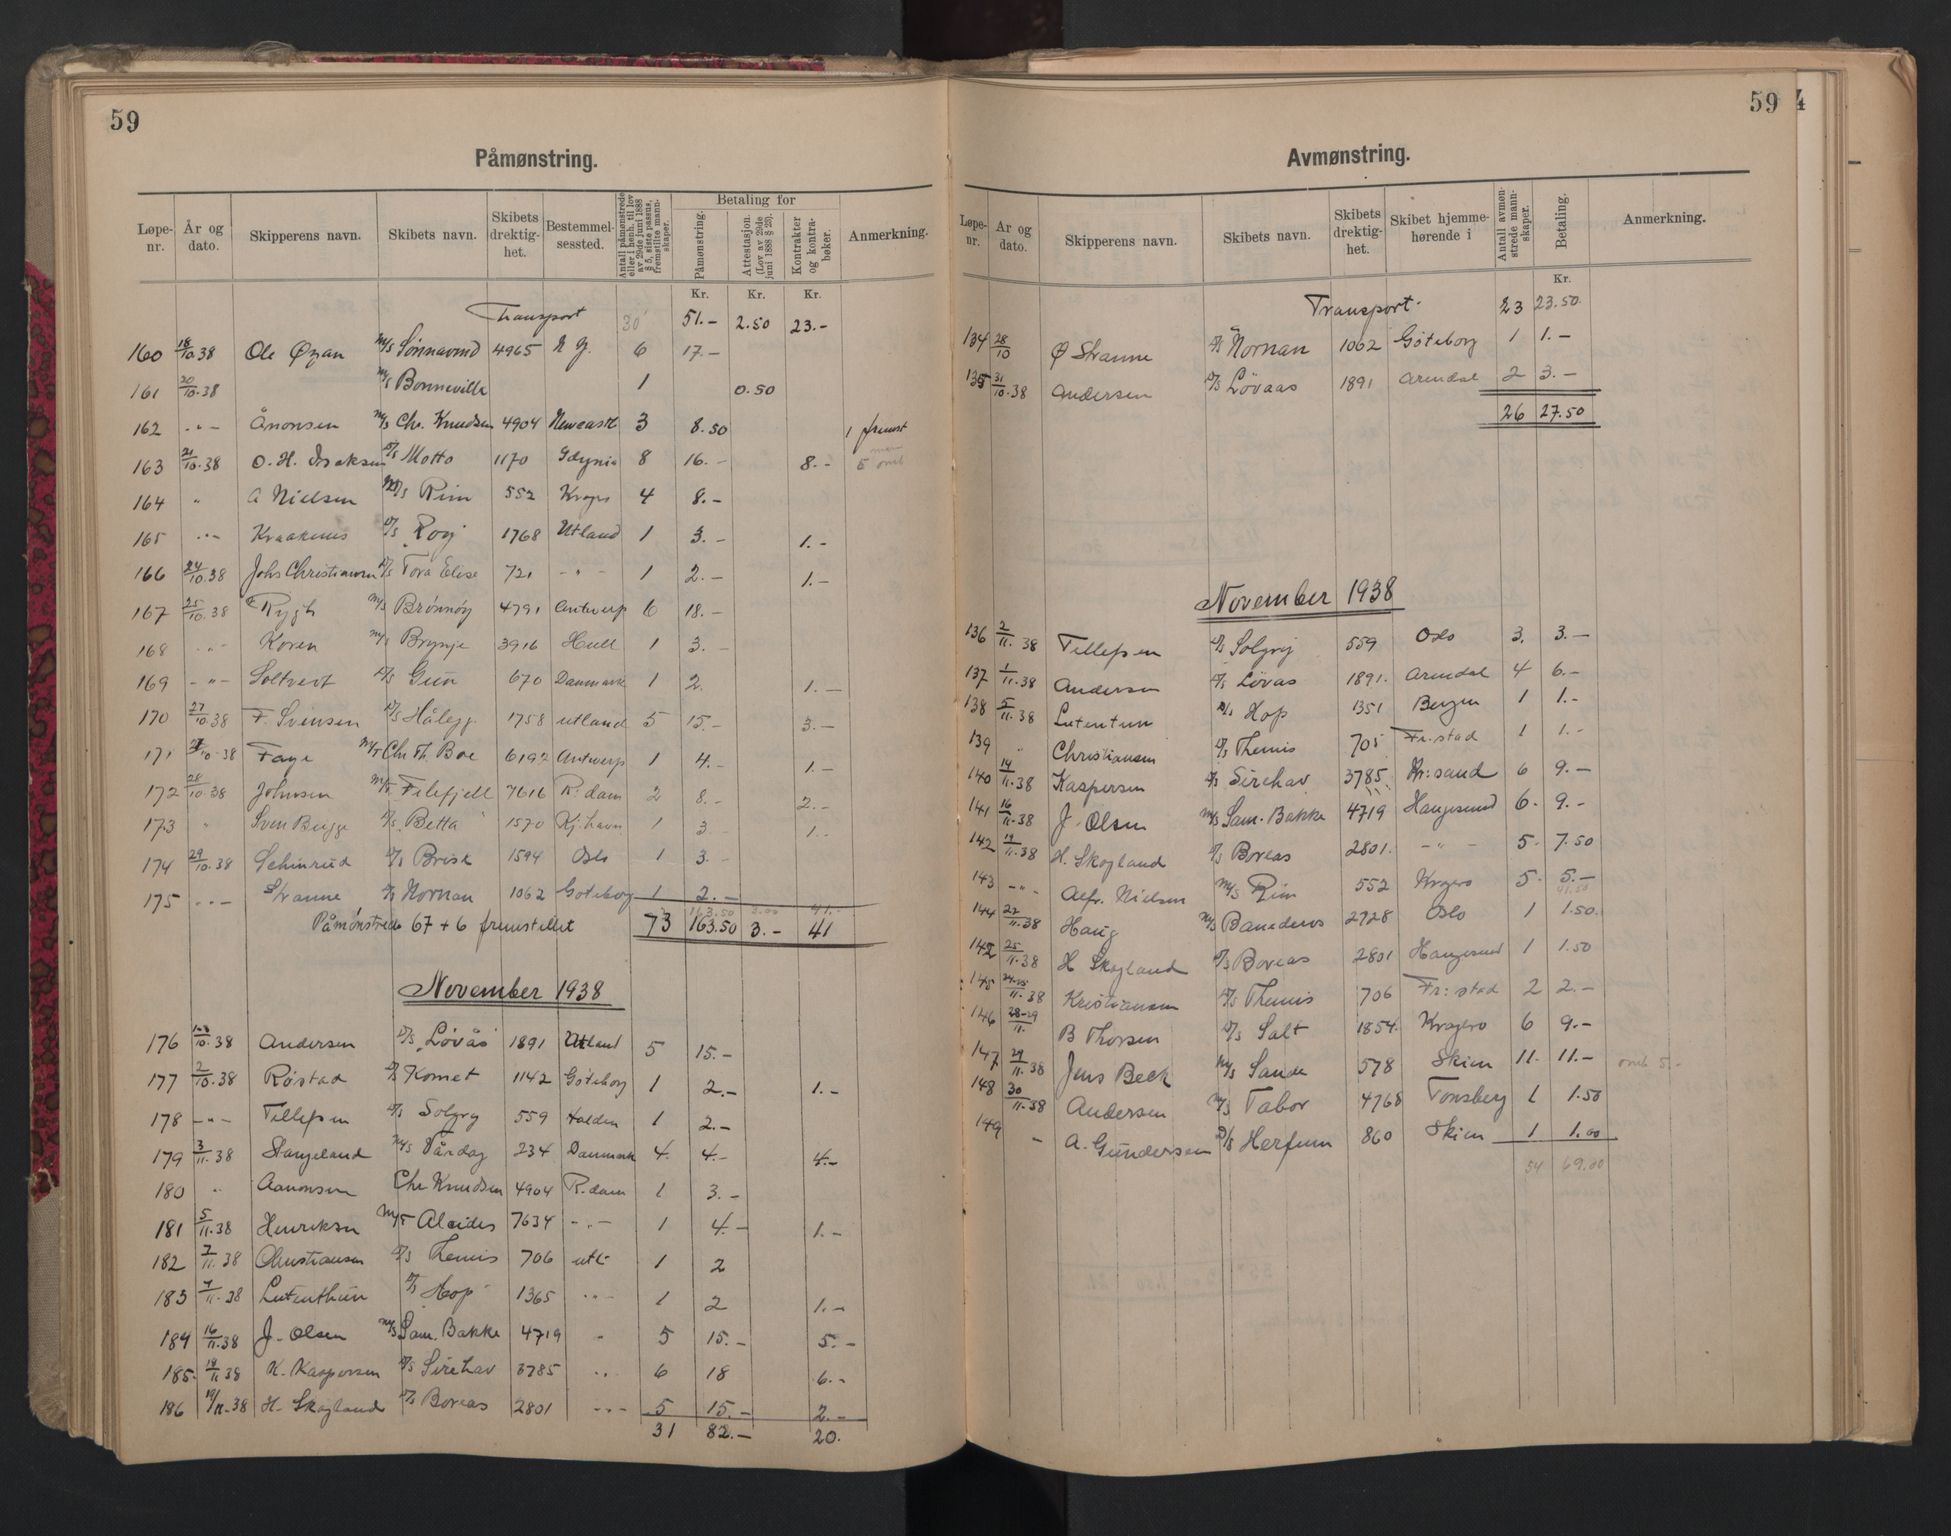 59
Påmønstring.
Løpe-nr. År og dato. Skipperens navn. Skibets navn. Skibets drektig-het. Bestemmel-sessted. Antall påmønstrede eller i henh. til lov av 29de juni 1888 § 5, siste passus, fremstilte mann-skaper. Betaling for Påmønstring. Attestasjon. (Lov av 29de juni 1888 § 23). Kontrakter og kontra-bøker. Anmerkning.
Kr. Kr. Kr.
Transport 30 51.- 2.50 23.-
160 18/10 38 Ole Øyan M/S Sønnavind 4965 N Y. 6 17.-
161 20/10.38 M/S Bonneville 1 0.50
162 -"- Ånonsen M/S Chr. Knudsen 4904 Newcastl 3 8.50 1 fremst
163 21/10.38 O. H. Isaksen D/S Motto 1170 Gdynia 8 16.- 8.-
164 " A Nielsen M/S Rim 552 Kragø 4 8.-
165 -"- Kraakenes D/S Roy 1768 Utland 1 3.- 1.-
166 24/10.38 Johs Christiansen D/S Tora Elise 721 -"- 1 2.- 1.-
167 25/10.38 Rygh M/S Brønnøy 4791 Antwerp 6 18.-
168 -"- Koren M/S Brynje 3916 Hull 1 3.-
169 -"- Soltvedt D/S Gun 670 Danmark 1 2. 1.-
170 27/10 38 F. Svensen D/S Hålegg 1758 utland 5 15.- 3.-
171 27/10-38 Faye M/T Chr Th. Boe 6192 Antwerp 1 4.- 1.-
172 28/10.38 Johnsen M/T Filefjell 7616 R.dam 2 8.- 2.-
173 " Sven Bugge D/S Betta 1570 Kj.havn 1 3. 1.-
174 29/10.38 Schinrud D/S Brisk 1594 Oslo 1 3.-
175 -"- Stranne D/S Nornan 1062 Göteborg 1 2.-
163.50 3.00 41.-
Påmønstrede 67 + 6 fremstillet 73 163.50 3.- 41
November 1938
176 1-3/10.38 Andersen D/S Løvås 1891 Utland 5 15.-
177 2/10.38 Røstad D/S Komet 1142 Göteborg 1 2.- 1.-
178 -"- Tillefsen D/S Solgry 559 Halden 1 2.-
179 3/11.38 Stangeland M/S Vårdag 234 Danmark 4. 4.- 4.-
180 " Aanonsen Chr Knudsen 4904 R.dam 1 3.-
181 5/11.38 Henriksen M/T Alcides 7634 -"- 1 4.- 1.-
182 7/11.38 Christiansen D/S Themis 706 utl. 1 2
183 7/11.38 Lutenthun D/S Hop 1365 -"- 1 2 1.-
184 16/11.38 J. Olsen M/S Sam. Bakke 4719 " 5 15.- 5.-
185. 18/11 38 K. Kaspersen D/S Sirehav 3785 -"- 6 18 6.-
186 19/11.38 H. Skogland D/S Boreas 2801 -"- 5 15.- 2.-
31 82.- 20.
59
Avmønstring.
Løpe-nr. År og dato. Skipperens navn. Skibets navn. Skibets drektig-het. Skibet hjemme-hørende i Antall avmøn-strede mann-skaper. Betaling. Anmerkning.
Kr.
Transport 23 23.50
134 28/10 Ø Stranne D/S Nornan 1062 Göteborg 1 1.-
135 31/10.38 Andersen D/S Løvaas 1891 Arendal 2 3.-
26 27.50
November 1938
136 2/11.38 Tillefsen D/S Solgry 559 Oslo 3. 3.-
137 1/11.38 Andersen D/S Løvås 1891. Arendal 4 6.-
138 5/11.38 Lutentun D/S Hop 1351 Bergen 1 1.-
139 " Christiansen D/S Themis 705 Fr.stad 1 1.-
140 14/11.38 Kaspersen D/S Sirehav 3785 Kr:sand 6 9.-
141 16/11-38 J. Olsen M/S Sam. Bakke 4719 Haugesund 6. 9.-
142 19/11.38 H. Skogland D/S Boreas 2801. -"- 5. 7.50
143 -"- Alfr. Nielsen M/S Rim 552 Kragerø 5. 5.-
41.50
144 22/11.38 Haug M/S Banaderos 2728 Oslo 1 1.50.
142 25/11.38 H Skogland D/S Boreas 2801 Haugesund 1 1.50
145 24-25/11.38 Kristiansen D/S Themis 706 Fr:stad 2 2.-
146 28-29/11. B Thorsen D/S Salt 1854. Kragerø 6 9.-
147 29/11.38 Jens Beck M/S Sande 578 Skien 11. 11.- 5.-
148 30/11-38 Andersen M/S Tabor 4768 Tønsberg 1 1.50
149 - A. Gundersen D/S Herfinn 860 Skien 1 1.00
54 69.00